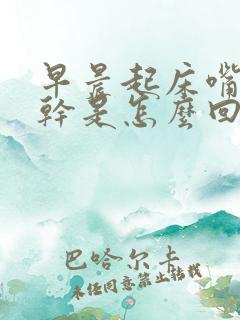 早晨起床嘴
幹是怎麼回
巴哈尔卡
未经同意禁止转载